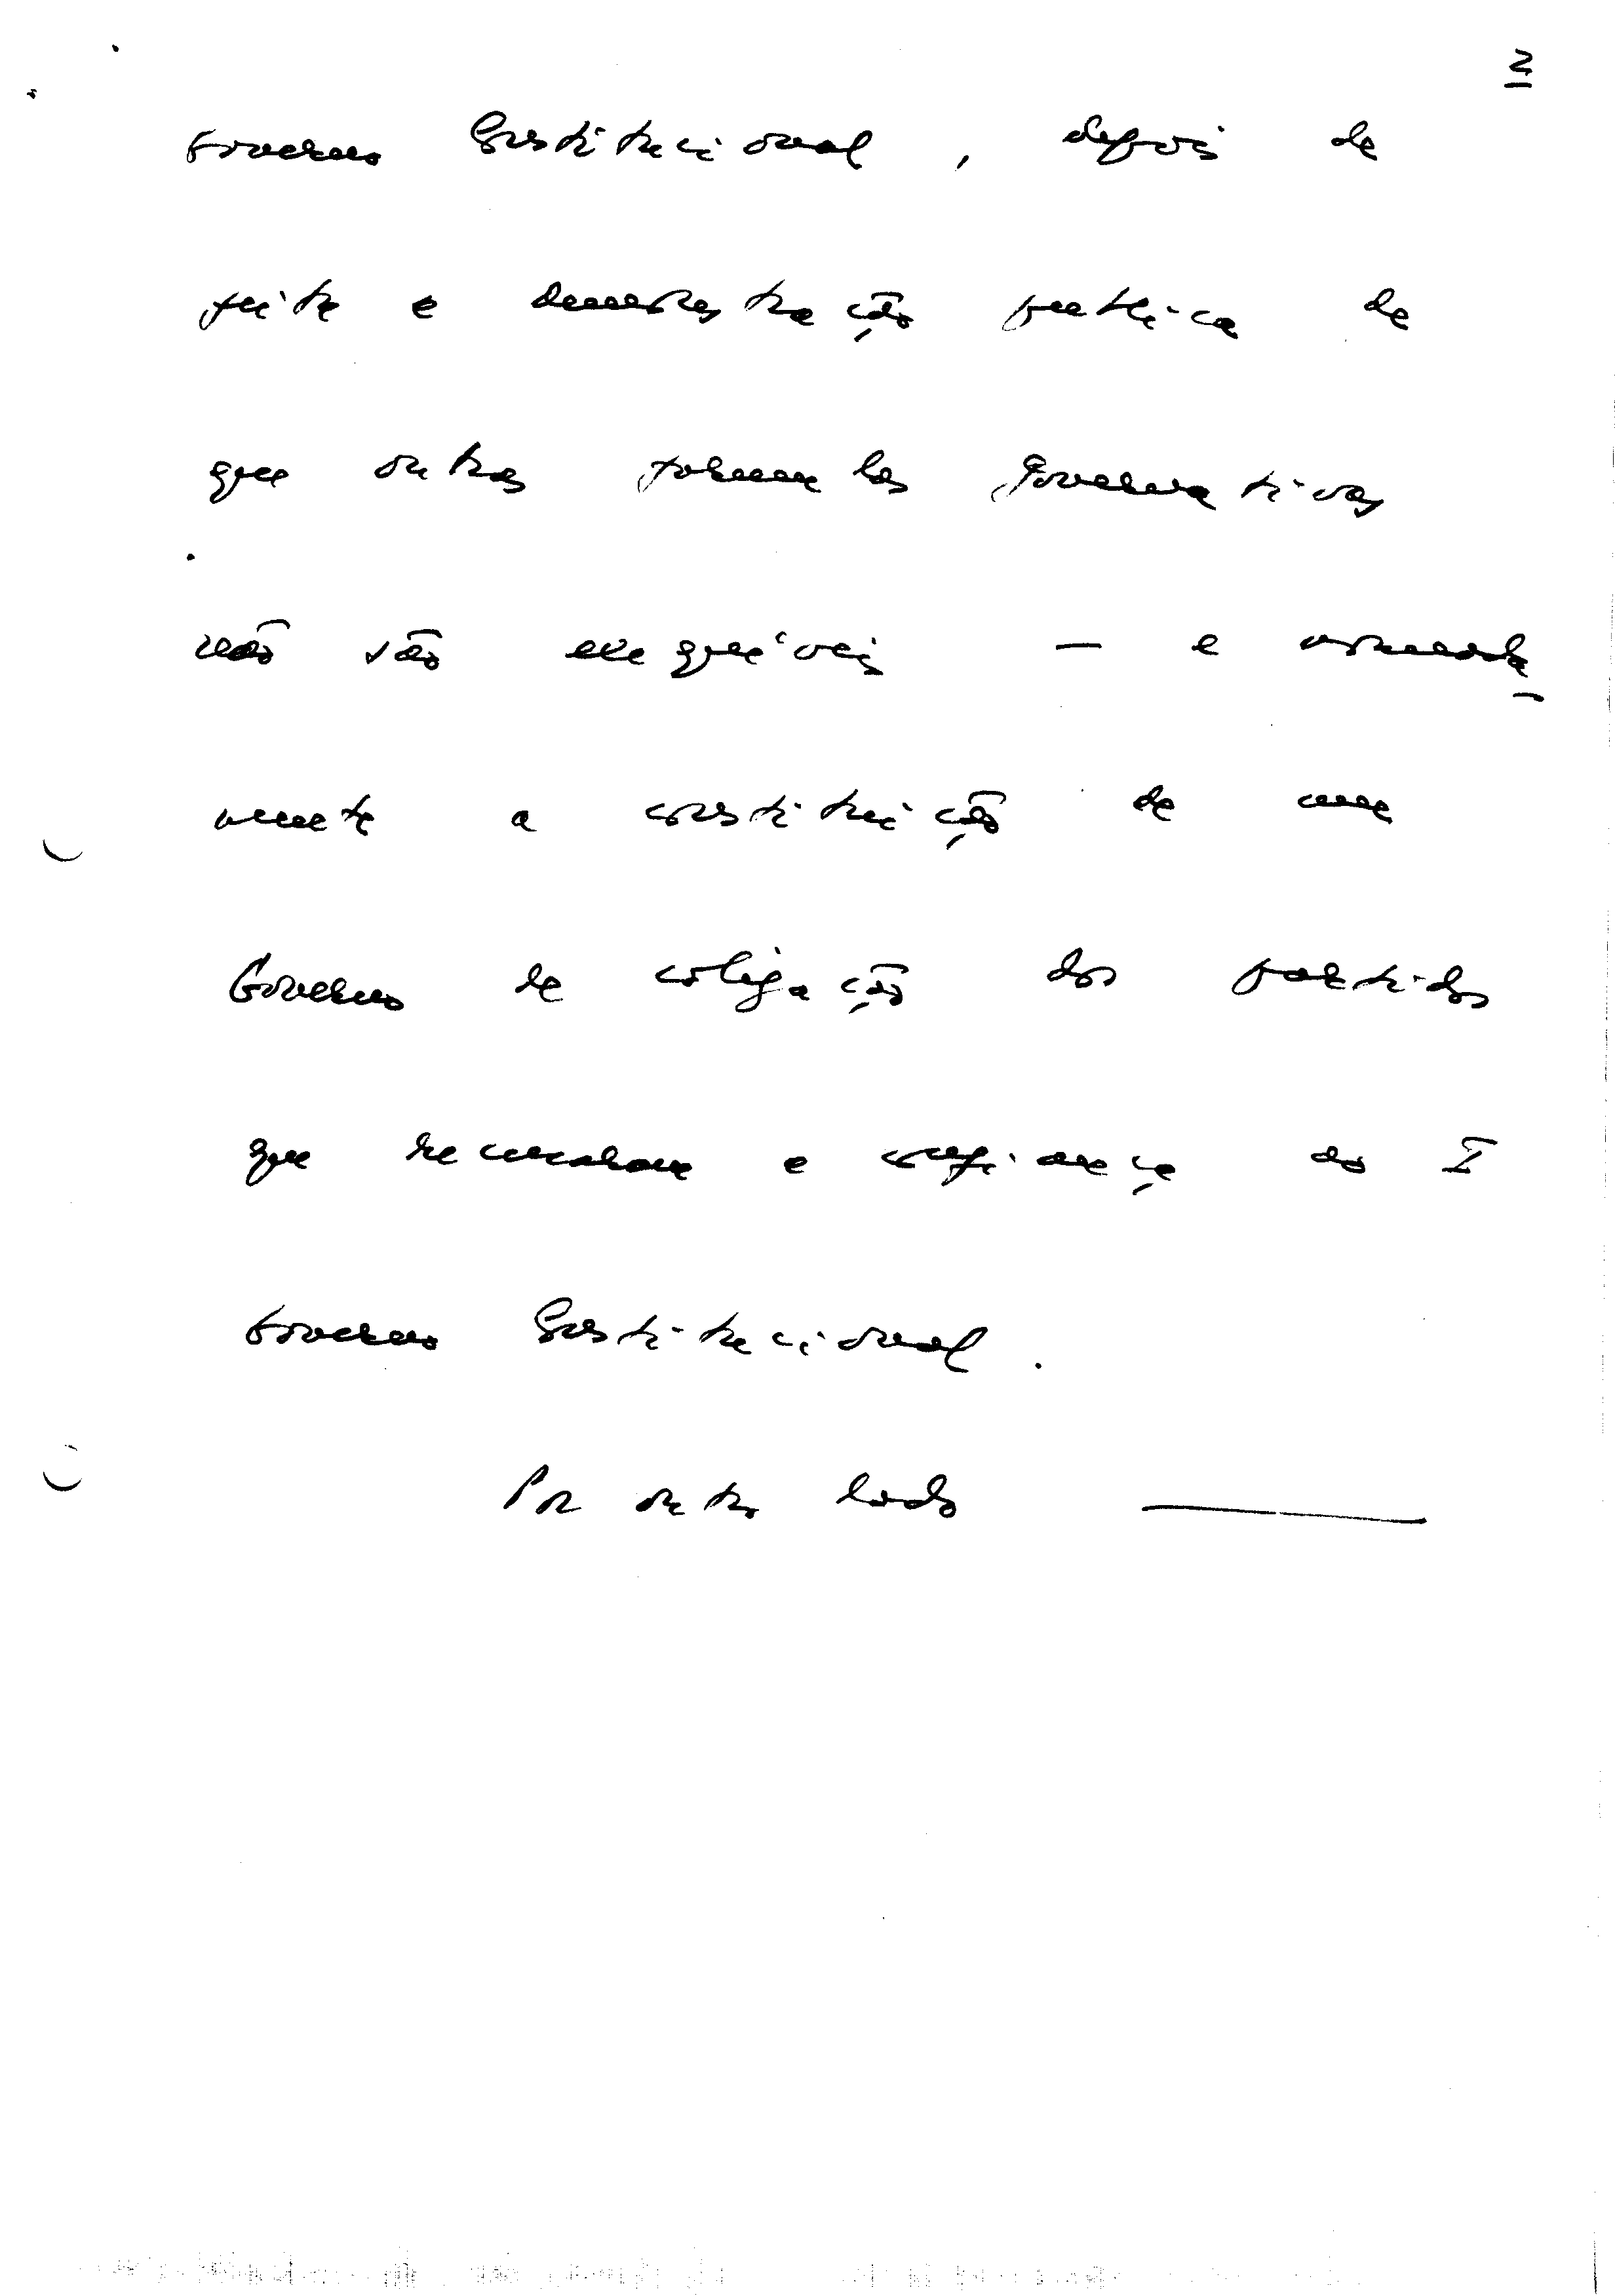 2
Governo Constitucional, depois de
feita a demonstração pública de
que outras fórmulas governativas
não são exequíveis — é
a constituição de um
Governo de coligação dos partidos
que recusaram a confiança ao I
Governo Constitucional.
Por outro lado ———